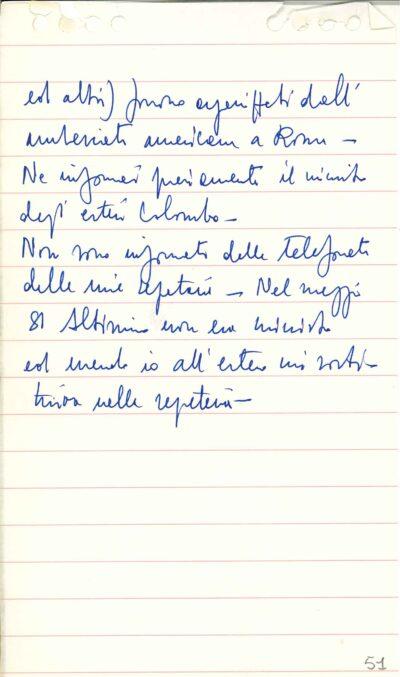 ed altri) furono organizzati dall'
ambasciata americana a Roma –
Ne informai previamente il ministro
degli esteri Colombo –
Non sono informato delle telefonate
della mia segretaria – Nel maggio
81 Altissimo non era ministro
ed essendo io all'estero mi sosti-
tuiva nella segreteria –
51